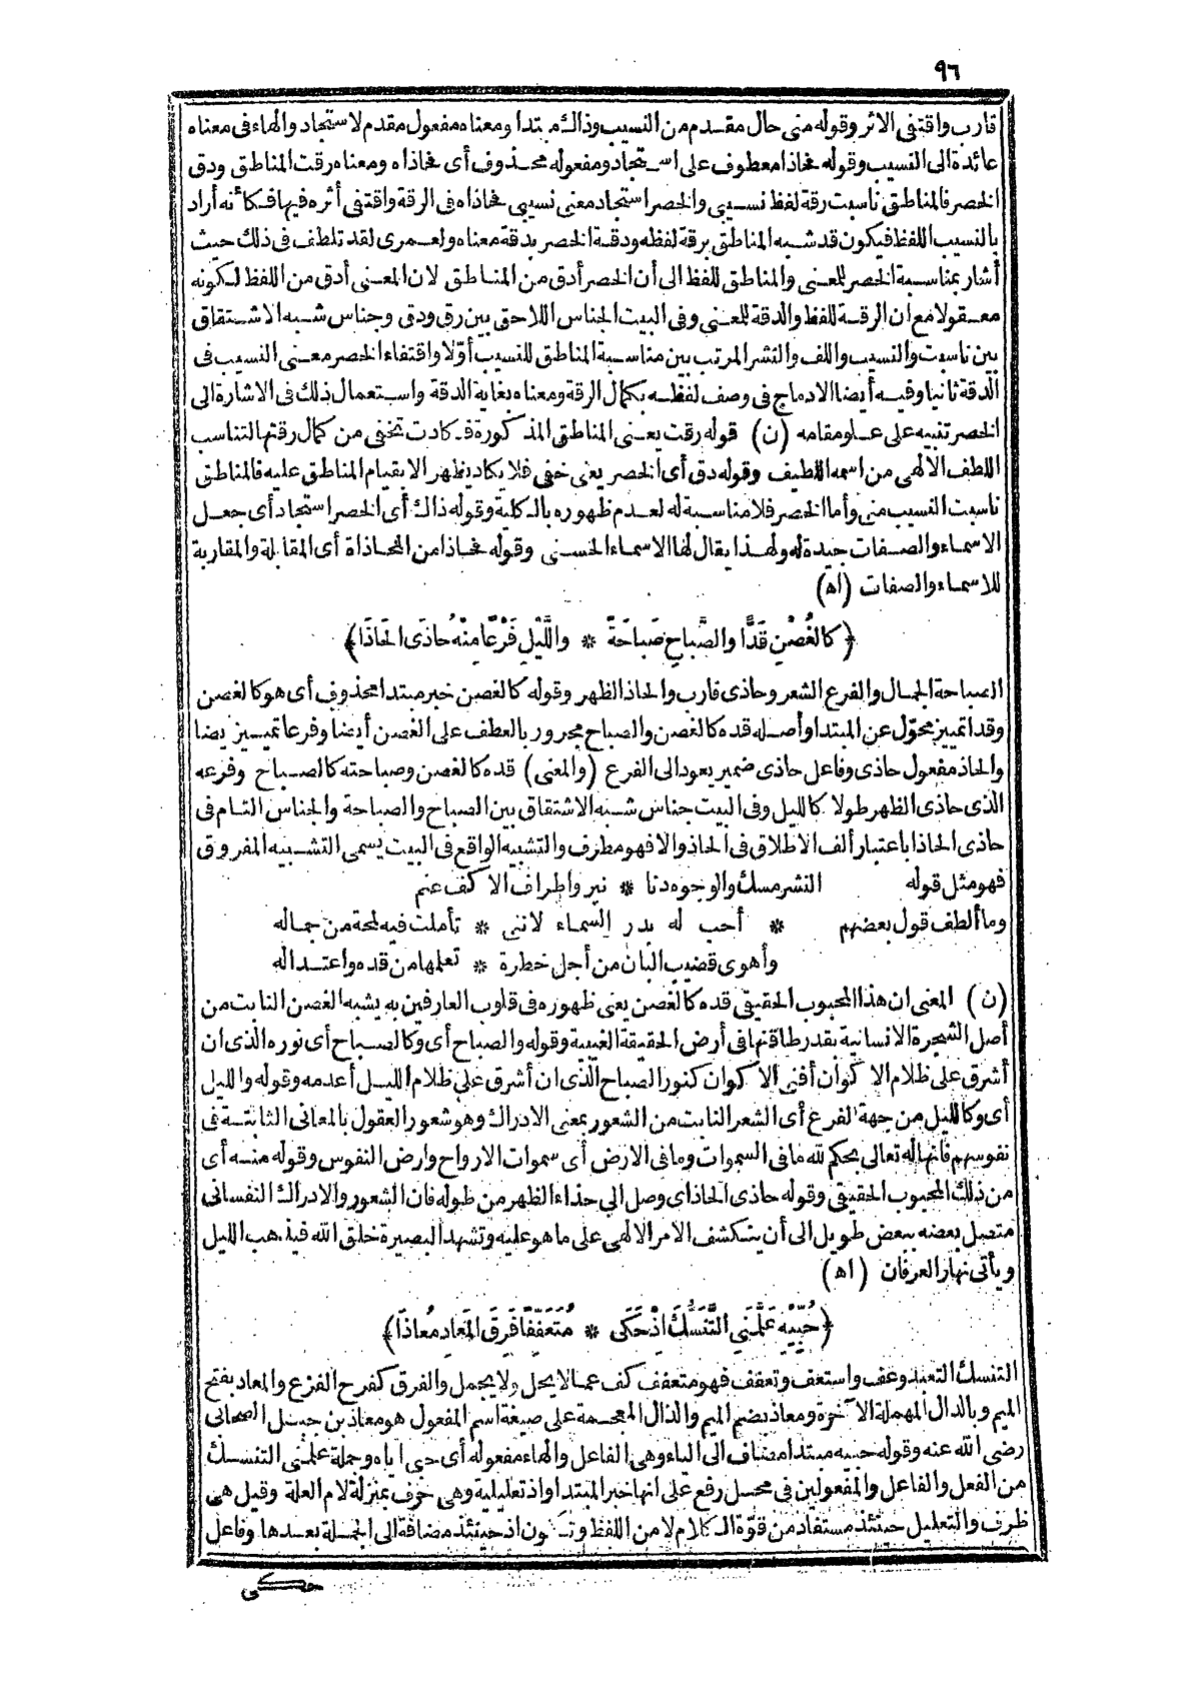 ٩٦
قارب واقتفى الاثر وقوله منى حال مقدم من النسيب وذاك مبتدا ومعناه مفعول مقدم لاستجاد والهاء فى معناه
عائدة الى النسيب وقوله فحاذا معطوف على استجاد ومفعوله محذوف أى فحاذاه ومعناه رقت المناطق ودق
الخصر فالمناطق ناسبت رقة لفظ نسيبى والخصر استجاد معنى نسيبى فحاذاه فى الرقة واقتفى أثره فيها فكأنه أراد
بالنسيب اللفظ فيكون قد شبه المناطق برقة لفظه ودقة الخصر بدقة معناه ولعمرى لقد تلطف فى ذلك حيث
أشار بمناسبة الخصر للمعنى والمناطق للفظ الى أن الخصر أدق من المناطق لان المعنى أدق من اللفظ لكونه
معقولا مع ان الرقة للفظ والدقة للمعنى وفى البيت الجناس اللاحق بين رق ودق وجناس شبه الاشتقاق
بين ناسبت والنسيب واللف والنشر المرتب بين مناسبة المناطق للنسيب أولا واقتفاء الخصر معنى النسيب فى
الدقة ثانيا وفيه أيضا الادماج فى وصف لفظه بكمال الرقة ومعناه بغاية الدقة واستعمال ذلك فى الاشارة الى
الخصر تنبيه على علو مقامه (ن) قوله رقت يعنى المناطق المذكورة فكادت تخفى من كمال رقتها لتناسب
اللطف الالهى من اسمه اللطيف وقوله دق أى الخصر يعنى خفى فلا يكاد يظهر الا بقيام المناطق عليه فالمناطق
ناسبت النسيب منى وأما الخصر فلا مناسبة له لعدم ظهوره بالكلية وقوله ذاك أى الخصر استجاد أى جعل
الاسماء والصفات جيدة له ولهذا يقال لها الاسماء الحسنى وقوله فحاذا من المحاذاة أى المقابلة والمقاربة
للاسماء والصفات (اه)
﴿كالغُصْنِ قَدًّا والصَّباحِ صَباحَةً * واللَّيْلِ فَرْعًا مِنْهُ حاذَى الحَاذَا﴾
الصباحة الجمال والفرع الشعر وحاذى قارب والحاذ الظهر وقوله كالغصن خبر مبتدا محذوف أى هو كالغصن
وقدا تمييز محوّل عن المبتدا وأصله قده كالغصن والصباح مجرور بالعطف على الغصن أيضا وفرعا تمييز يضا
والحاذ مفعول حاذى وفاعل حاذى ضمير يعود الى الفرع (والمعنى) قده كالغصن وصباحته كالصباح وفرعه
الذى حاذى الظهر طولا كالليل وفى البيت جناس شبه الاشتقاق بين الصباح والصباحة والجناس التام فى
حاذى الحاذا باعتبار ألف الاطلاق فى الحاذ والا فهو مطرف والتشبيه الواقع فى البيت يسمى التشبيه المفروق
فهو مثل قوله النشر مسك والوجوه دنا * نير واطراف الاكف عنم
وما ألطف قول بعضهم * أحب له بدر السماء لاننى * تأملت فيه لمحة من جماله
وأهوى قضيب البان من أجل خطرة * تعلمها من قده واعتداله
(ن) المعنى ان هذا المحبوب الحقيقى قده كالغصن يعنى ظهوره فى قلوب العارفين به يشبه الغصن النابت من
أصل الشجرة الانسانية بقدر طاقتها فى أرض الحقيقة الغيبية وقوله والصباح أى وكالصباح أى نوره الذى ان
أشرق على ظلام الاكوان أفنى الاكوان كنور الصباح الذى ان أشرق على ظلام الليل أعدمه وقوله والليل
أى وكالليل من جهة الفرع أى الشعر النابت من الشعور بمعنى الادراك وهو شعور العقول بالمعانى الثابتة فى
نفوسهم فانها له تعالى بحكم لله ما فى السموات وما فى الارض أى سموات الارواح وارض النفوس وقوله منه أى
من ذلك المحبوب الحقيقى وقوله حاذى الحاذا أى وصل الى حذاء الظهر من طوله فان الشعور والادراك النفسانى
متصل بعضه ببعض طويل الى أن ينكشف الامر الالهى على ما هو عليه وتشهد البصيرة خلق الله فيذهب الليل
ويأتى نهار العرفان (اه)
﴿حُبِّيْهِ عَلَّمَنِي التَّنَسُّكَ اذْ حَكَى * مُتَعَفِّفًا فَرَقَ المَعادِ مُعاذَا﴾
التنسك التعبد وعف واستعف وتعفف فهو متعفف كف عما لا يحل ولا يجمل والفرق كفرح الفزع والمعاد بفتح
الميم وبالدال المهملة الآخرة ومعاذ بضم الميم والذال المعجمة على صيغة اسم المفعول هو معاذ بن جبل الصحابى
رضى الله عنه وقوله حبيه مبتدا مضاف الى الياء وهى الفاعل والهاء مفعوله أى حبى اياه وجملة علمنى التنسك
من الفعل والفاعل والمفعولين فى محل رفع على انها خبر المبتدا واذ تعليلية وهى حرف بمنزلة لام العلة وقيل هى
ظرف والتعليل حينئذ مستفاد من قوّة الكلام لا من اللفظ وتكون اذ حينئذ مضافة الى الجملة بعدها وفاعل
حكى